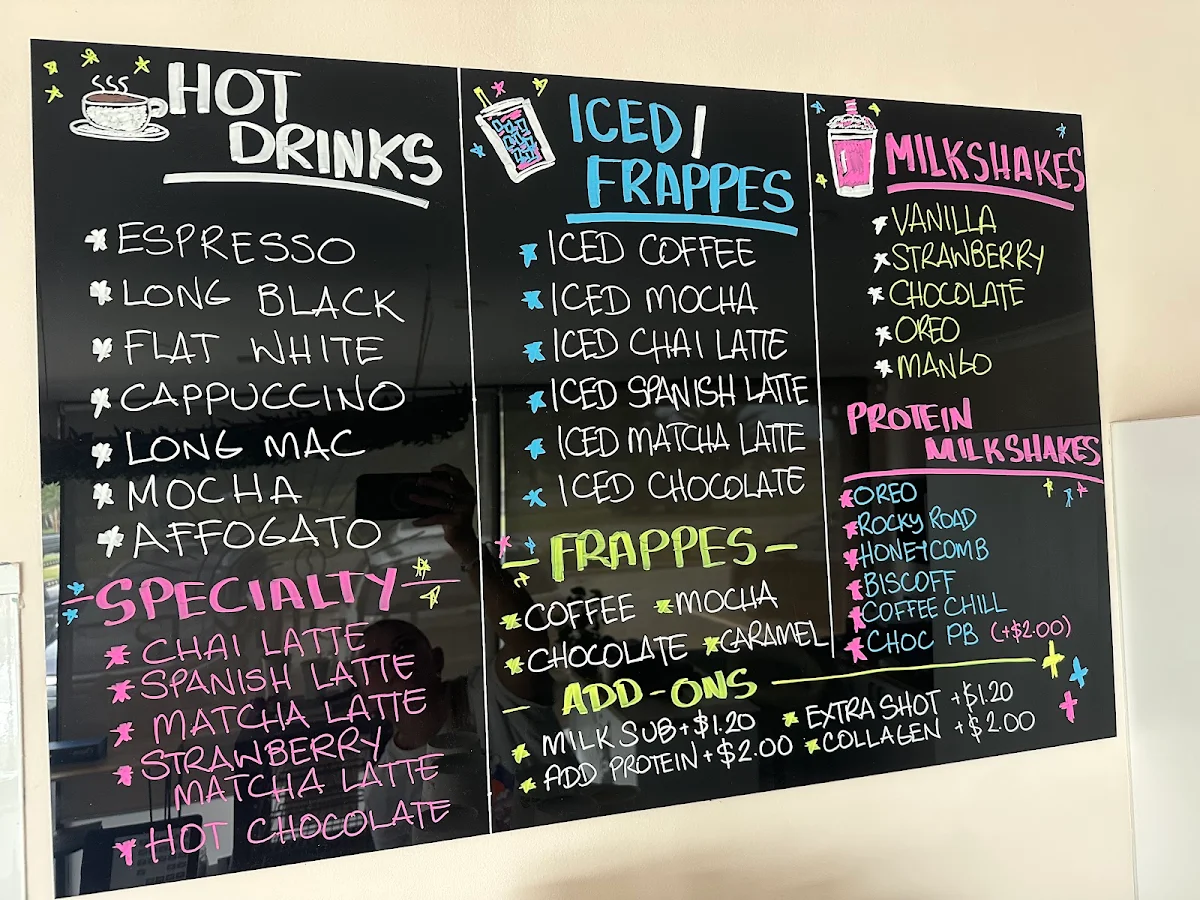 HOT
DRINKS
ESPRESSO
LONG BLACK
FLAT WHITE
CAPPUCCINO
LONG MAC
MOCHA
AFFOGATO
SPECIALTY
CHAI LATTE
SPANISH LATTE
MATCHA LATTE
STRAWBERRY
MATCHA LATTE
HOT CHOCOLATE
ICED/
FRAPPES
ICED COFFEE
ICED MOCHA
ICED CHAI LATTE
ICED SPANISH LATTE
ICED MATCHA LATTE
ICED CHOCOLATE
- FRAPPES -
COFFEE MOCHA
CHOCOLATE CARAMEL
- ADD-ONS
MILK SUB +$1.20 EXTRA SHOT +$1.20
ADD PROTEIN +$2.00 COLLAGEN +$2.00
MILKSHAKES
VANILLA
STRAWBERRY
CHOCOLATE
OREO
MANGO
PROTEIN
MILKSHAKES
OREO
ROCKY ROAD
HONEYCOMB
BISCOFF
COFFEE CHILL
CHOC PB (+$2.00)